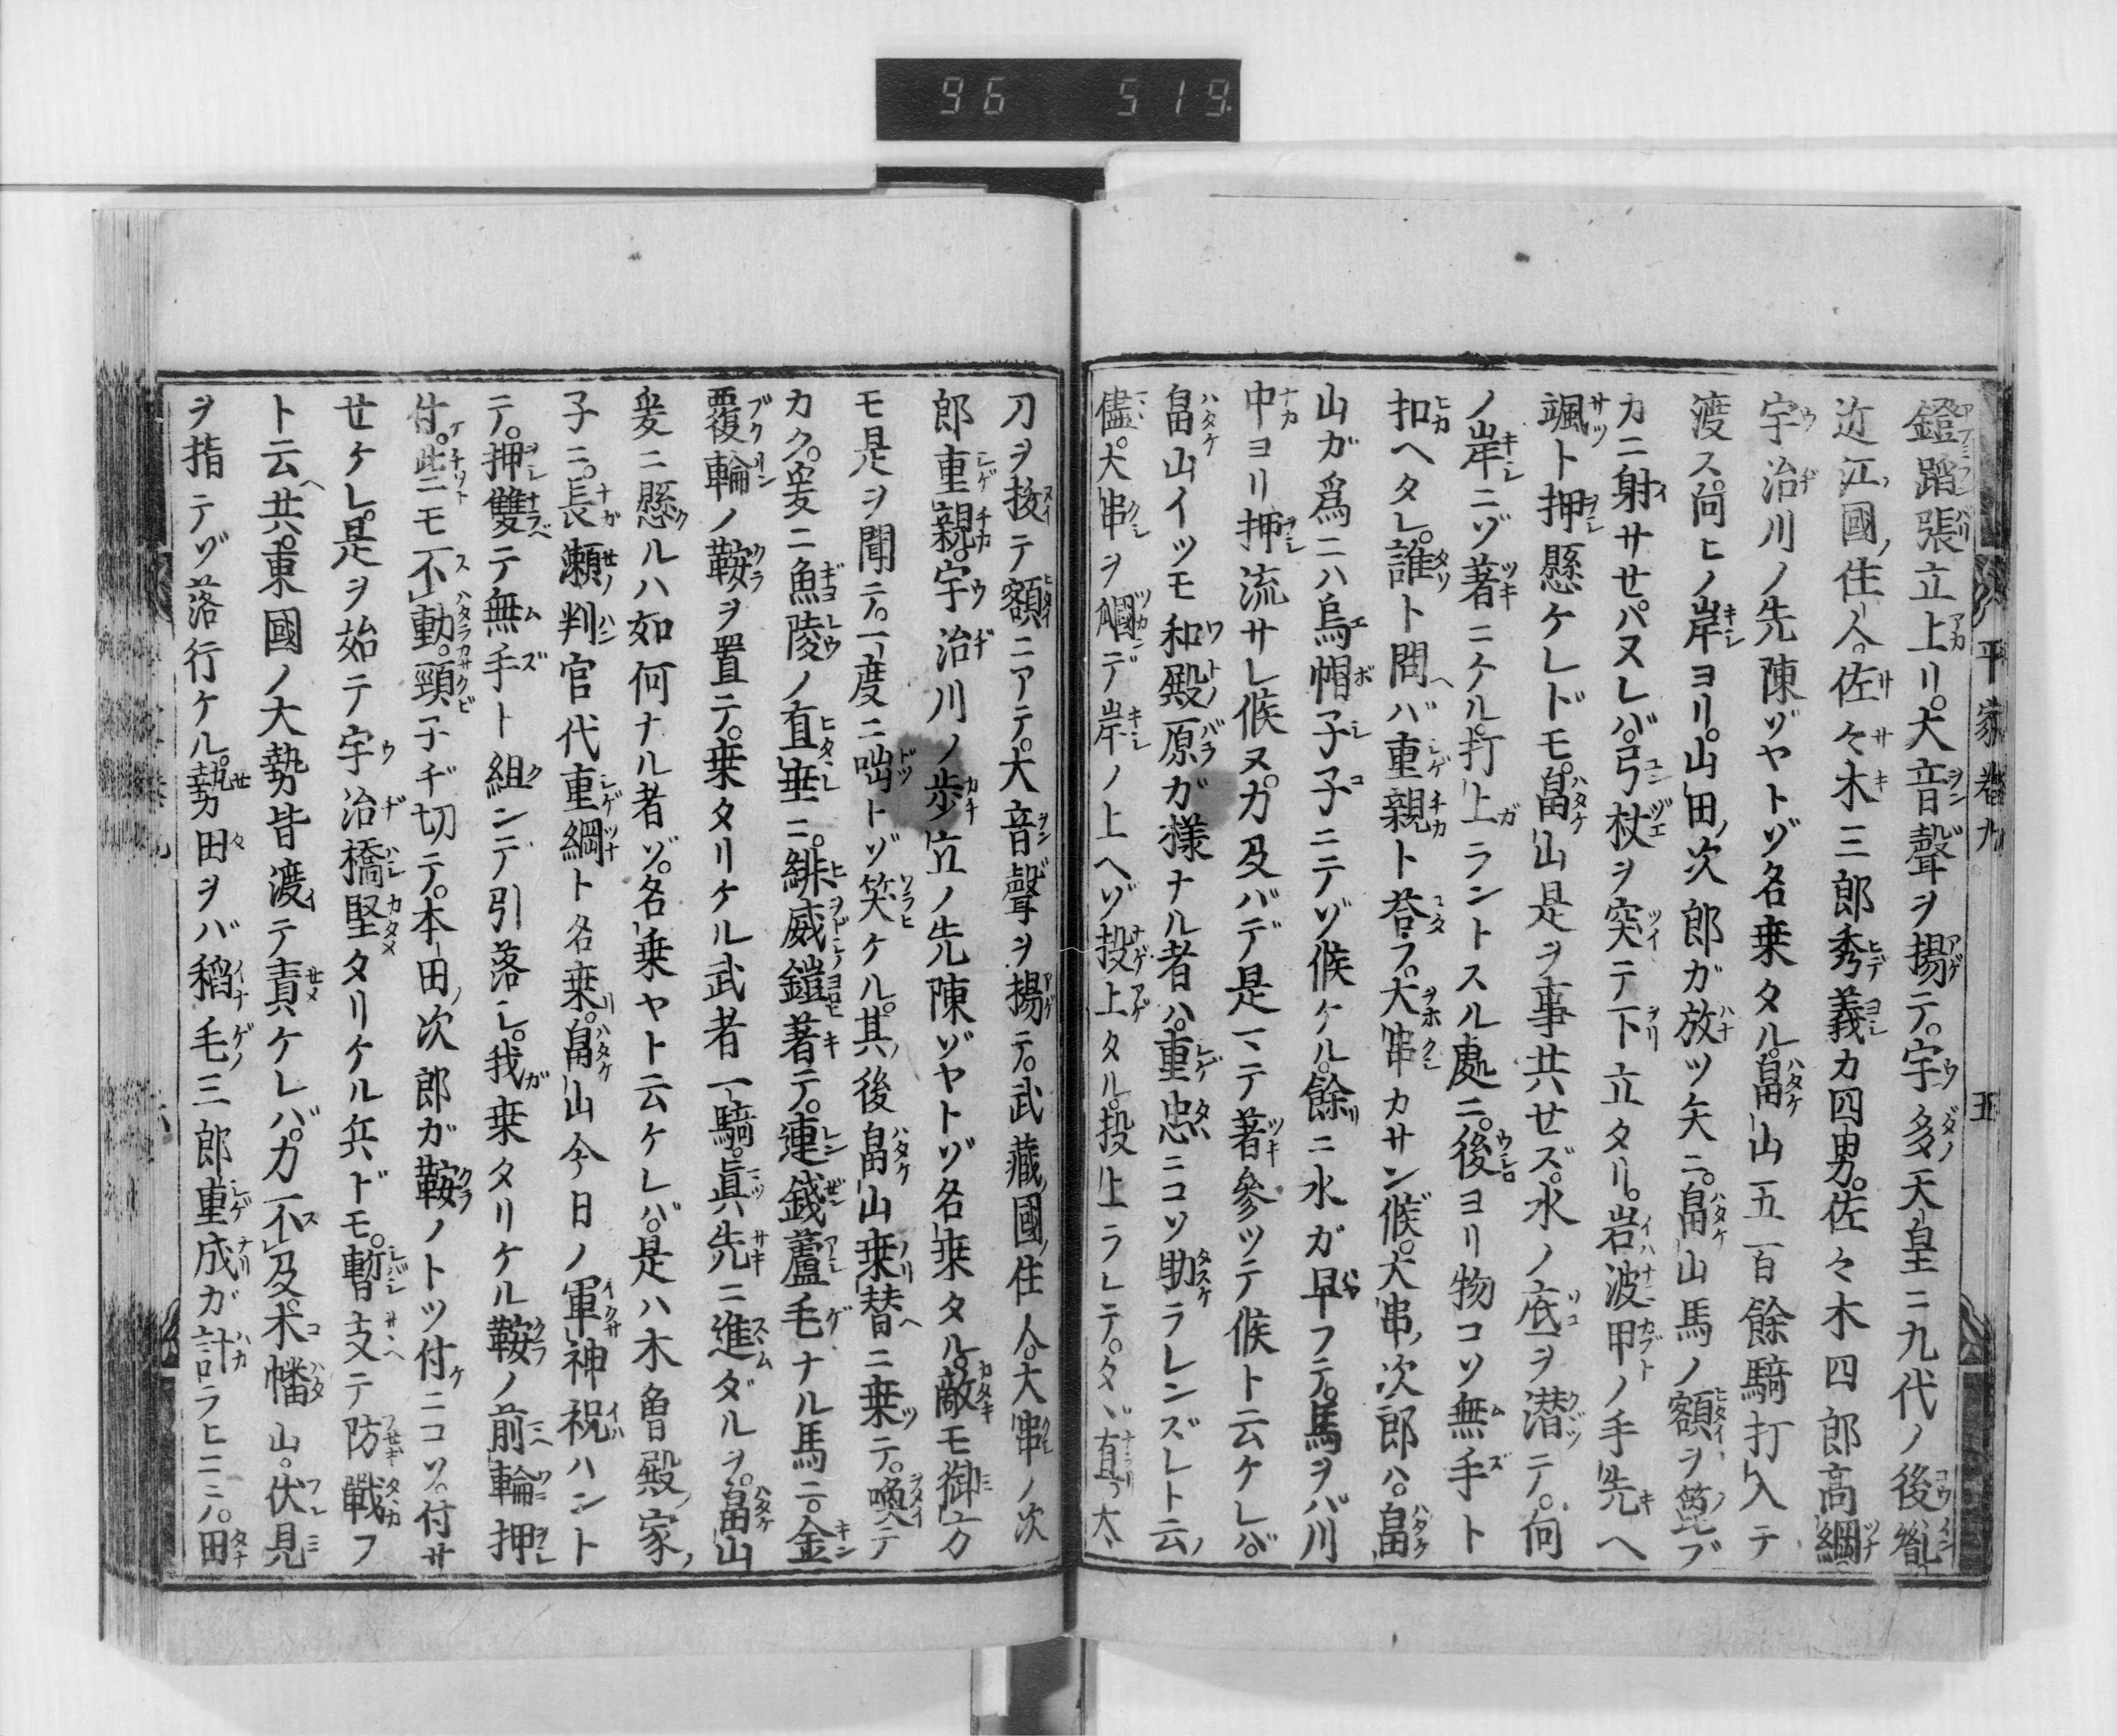 96 519
平家卷九 五
鐙蹈張立上リ。大音聲ヲ揚テ。宇多天皇ニ九代ノ後胤
近江國ノ住人。佐々木三郎秀義カ四男。佐々木四郎高綱
宇治川ノ先陳ゾヤトゾ名乗タル。畠山五百餘騎打入テ
渡ス。向ヒノ岸ヨリ。山田ノ次郎ガ放ツ矢ニ。畠山馬ノ額ヲ篦ブ
カニ射サセハヌレバ。弓杖ヲ突テ下立タリ。岩波甲ノ手先ヘ
颯ト押懸ケレドモ。畠山是ヲ事共セズ。水ノ底ヲ潜テ。向
ノ岸ニゾ著ニケル。打上ラントスル處ニ。後ヨリ物コソ無手ト
扣ヘタレ。誰ト問ヘバ重親ト荅フ。大串カサン候。大串ノ次郎ハ。畠
山ガ爲ニハ烏帽子子ニテゾ候ケル。餘ニ水ガ早フテ。馬ヲバ川
中ヨリ押流サレ候ヌ。力及バデ是マテ著參ツテ候ト云ケレバ。
畠山イツモ和殿原ガ様ナル者ハ。重忠ニコソ助ラレンズレト云ノ
儘。大串ヲ掴デ岸ノ上ヘゾ投上タル。投上ラレテ。タヾ直ツ太
刀ヲ拔テ額ニアテ。大音聲ヲ揚テ。武藏國ノ住人。大串ノ次
郎重親。宇治川ノ歩立ノ先陳ゾヤトゾ名乗タル。敵モ御方
モ是ヲ聞テ。一度ニ咄トゾ笑ケル。其ノ後畠山乗替ニ乗テ。喚テ
カク。爰ニ魚陵ノ直垂ニ。緋威鎧著テ。連錢蘆毛ナル馬ニ。金
覆輪ノ鞍ヲ置テ。乗タリケル武者一騎。眞先ニ進ダルヲ。畠山
爰ニ懸ルハ如何ナル者ゾ。名乗ヤト云ケレバ。是ハ木曾殿ノ家ノ
子ニ。長瀬判官代重綱ト名乗。畠山今日ノ軍神祝ハント
テ。押雙テ無手ト組ンデ引落シ。我乗タリケル鞍ノ前輪押
付。些ニモ不動。頸子ヂ切テ。本田ノ次郎ガ鞍ノトツ付ニコソ。付サ
セケレ。是ヲ始テ宇治橋堅タリケル兵ドモ。暫支テ防戰フ
ト云ヘ共。東國ノ大勢皆渡テ責ケレバ。力不及。木幡山。伏見
ヲ指テゾ落行ケル。勢田ヲバ稻毛三郎重成ガ計ラヒニテ。田